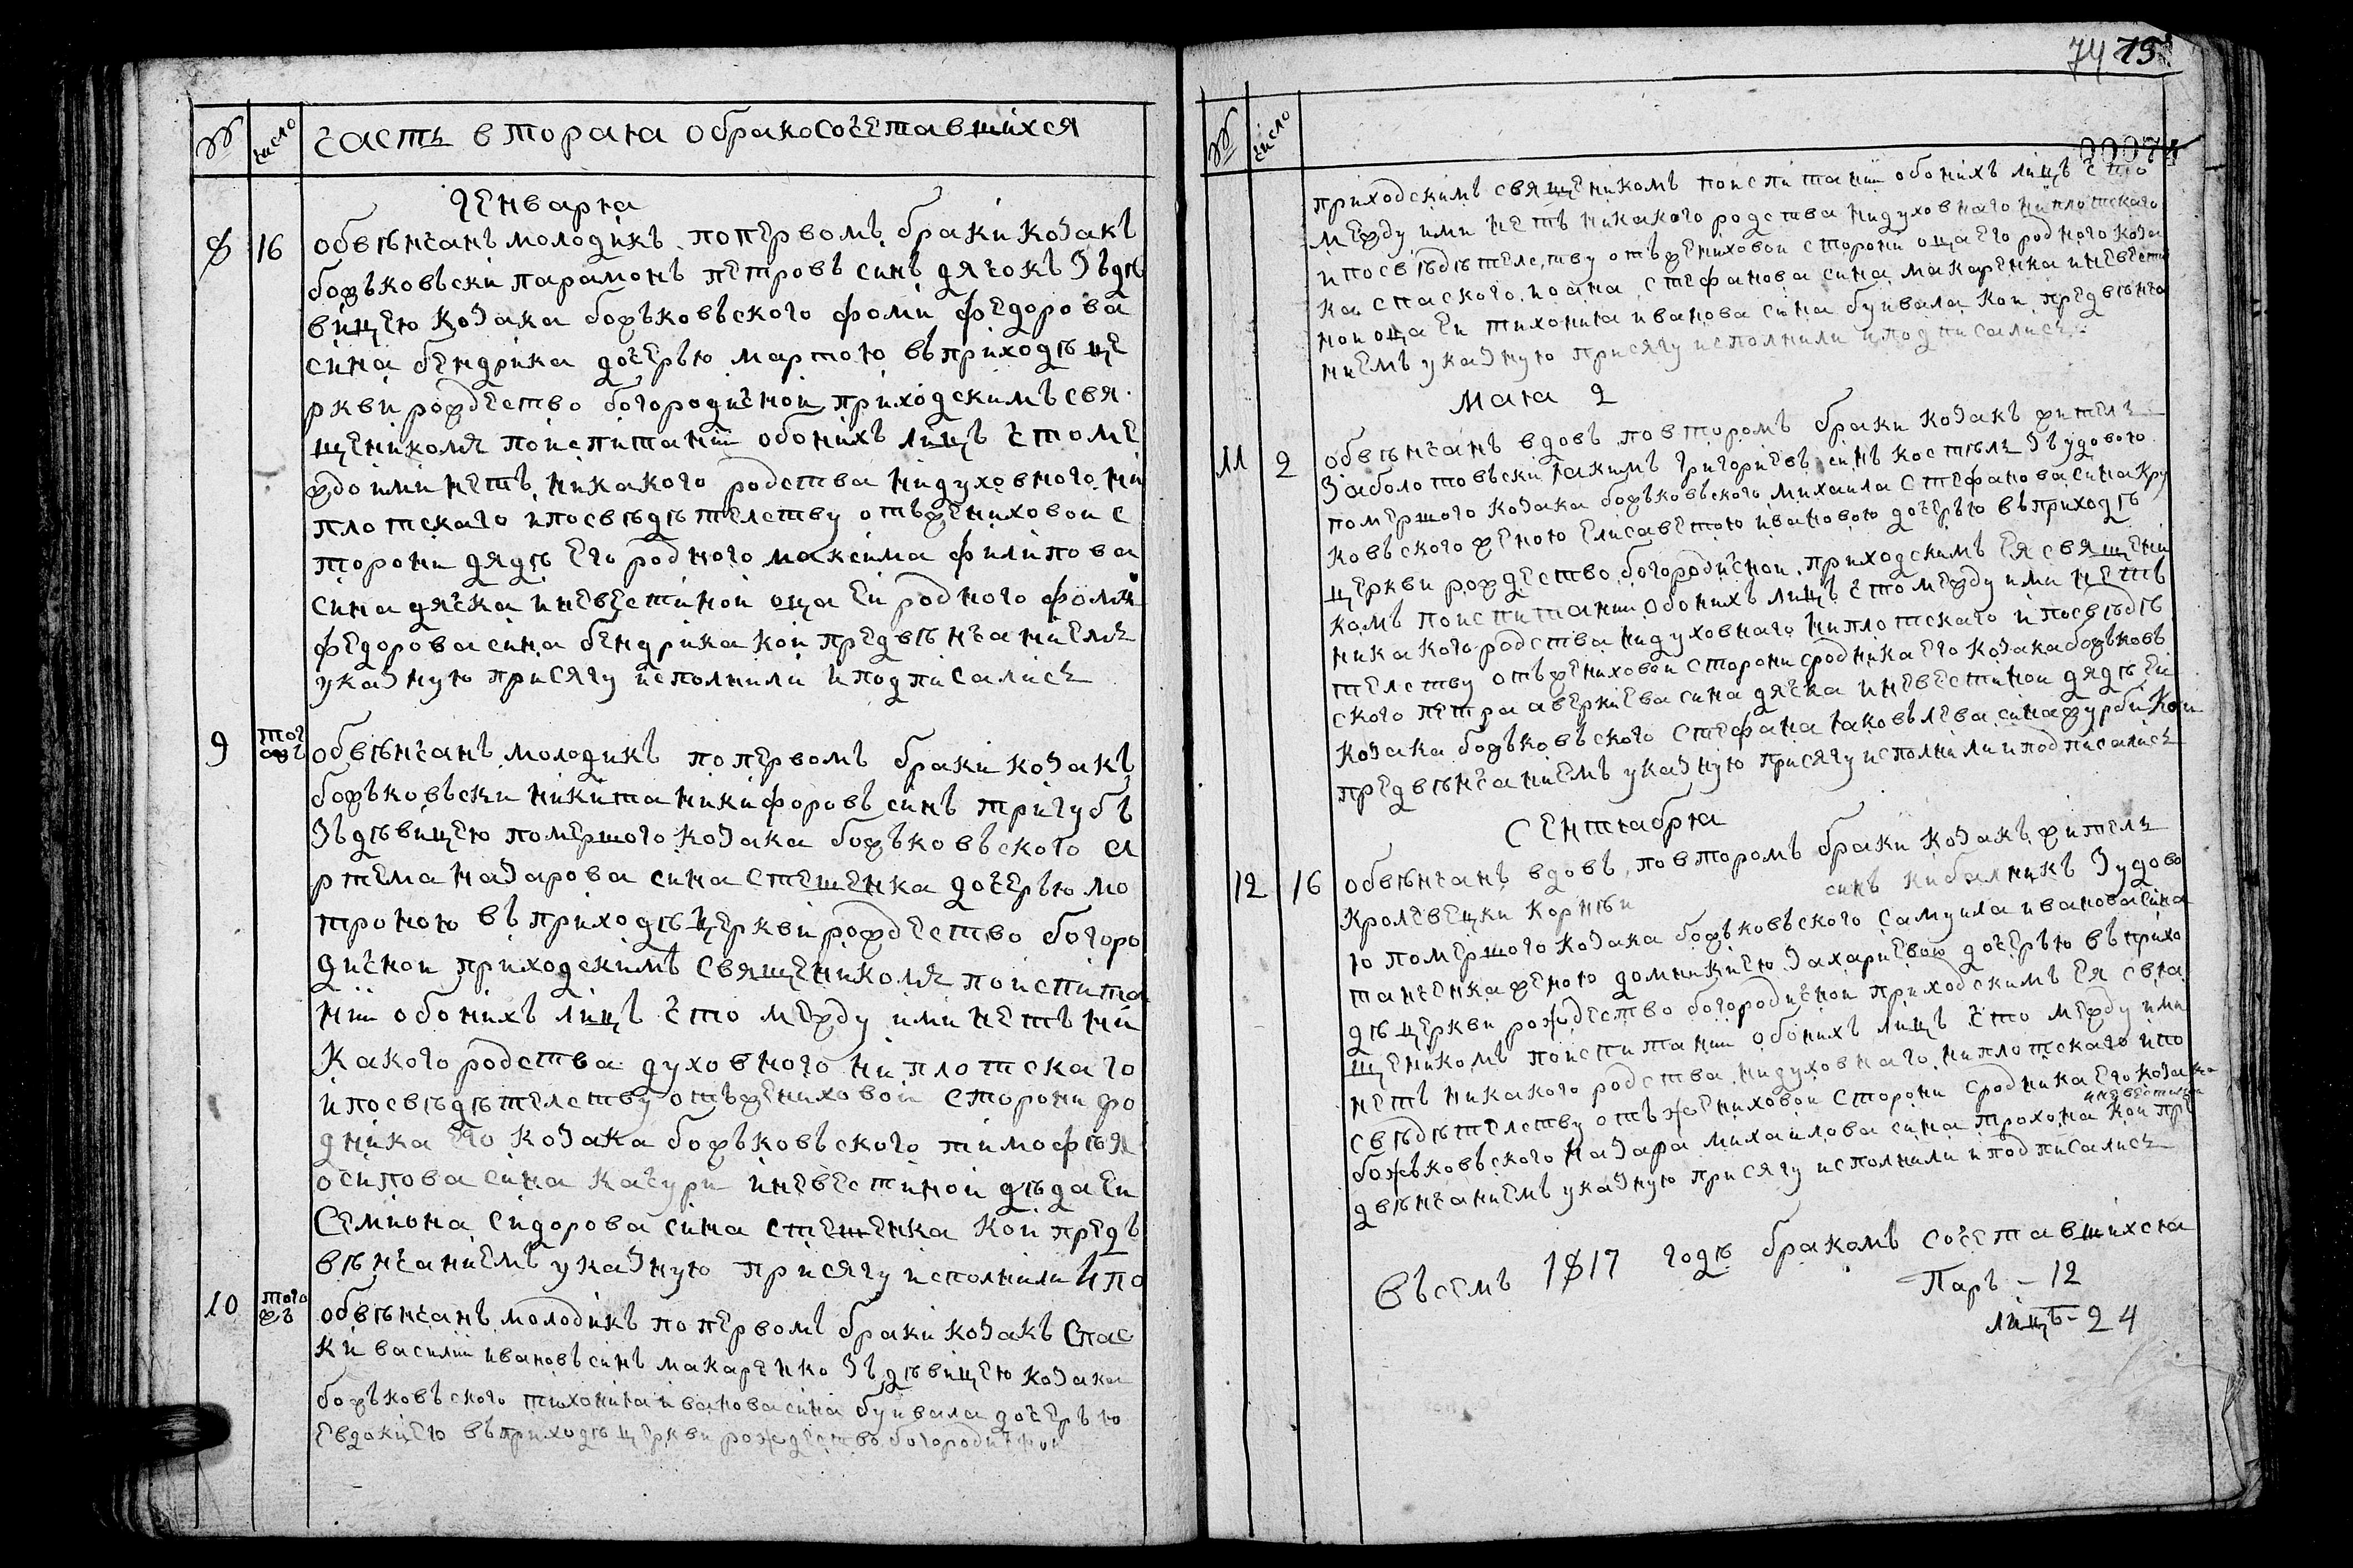 № число часть вторага обракосочетавшихся
Генварга
8 16 обвѣнчанъ молодикъ поперъвомъ браки козакъ
божъковъски парамонъ петровъ синъ дячокъ зъдѣ
вицею козака божъковъского фоми федорова
сина бендрика дочерью мартою въприходѣ це
ркви рождество богородичной приходскимъ свя
щеникомъ поиспитании обоихъ лицъ что ме
ждо ими нетъ никакого родства нидуховного ни
плотскаго ипосвѣдѣтелству отъжениховой с
торони дядѣ его родного максима филипова
сина дячка иневестиной оца ей родного фоми
федорова сина бендрика кои предвѣнчаниемъ
указную присягу исполнили иподписались
9 тог ожъ обвѣнчанъ молодикъ поперъвомъ браки козакъ
божъковъски никита никифоровъ синъ тригубъ
зъдѣвицею помершого козака божъковъского а
ртема назарова сина стешенка дочерью мо
троною въприходѣ церкви рождество богоро
дичной приходскимъ священикомъ поиспита
нии обоихъ лицъ что между ими нетъ ни
какого родства духовного ни плотскаго
ипосвѣдѣтелству отъжениховой сторони ро
дника его козака божъковъского тимофѣя
осипова сина качури иневестиной дѣда ей
Семиона Сидорова сина стешенка кои предъ
вѣнчаниемъ указную присягу исполнили ипо
10 того жъ обвѣнчанъ молодикъ поперъвомъ браки козакъ Спас
ки василии ивановъ синъ макаренко зъдѣвицею козака
божъковъского тихонига иванова сина буивала дочерью
евдокиею въприходѣ церкви рождество богородичной
74 75
00074
№ число
приходскимъ священикомъ поиспитании обоихъ лицъ что
между ими нетъ никакого родства нидуховнаго ниплотскаго
ипосвѣдѣтелству отъжениховой сторони оца его родного коза
ка спаского иоана стефанова сина макаренка иневести
ной оца ей тихонига иванова сина буивала кои предвѣнча
ниемъ указную присягу исполнили иподписались
Мага 2
11 2 обвѣнчанъ вдовъ повторомъ браки козакъ житель
Заболотовъски гакимъ григориевъ синъ костѣль зъудовою
помершого козака божъковъского михаила стефанова сина кру
ковъского женою елисаветою ивановою дочерью въприходѣ
церкви рождество богородичной приходскимъ ея священи
комъ поиспитании обоихъ лицъ что между ими нетъ
никакого родства нидуховнаго ниплотскаго ипосвѣдѣ
телству отъжениховой сторони сродника его козака божъковъ
ского петра аверкиева сина дячка иневестиной дядѣ ей
козака божъковъского стефана гаковълева сина журби кои
предвѣнчаниемъ указную присягу исполнили иподписались
Сентгабрга
12 16 обвѣнчанъ вдовъ повторомъ браки козакъ житель
Кролевецки корнѣи синъ кибалникъ зудово
ю помершого козака божъковъского самуила иванова сина
танченка женою домникиею захариевою дочерью въприхо
дѣ церкви рождество богородичной приходскимъ ея свга
щеникомъ поиспитании обоихъ лицъ что между ими
нетъ никакого родства нидуховнаго ниплотскаго ипо
свѣдѣтелству отъжениховой сторони сродника его козака
иневестиной
божъковъского назара михаилова сина трохона кои пре
двѣнчаниемъ указную присягу исполнили иподписались
Въсемъ 1817 годѣ бракомъ сочетавшихсга
Паръ - 12
лицъ - 24